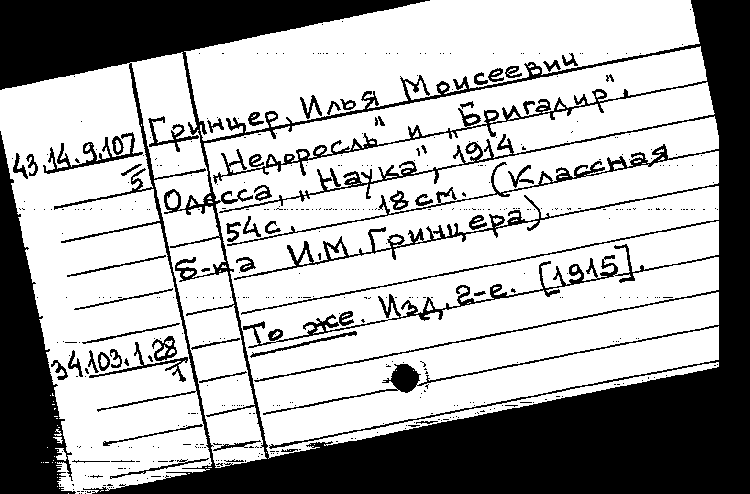 Гринцер, Илья Моисеевич
43.14.9.107
5
„Недоросль" и „Бригадир".
Одесса, „Наука", 1914.
54с. 18см. (Классная
б-ка И.М.Гринцера).
34.103.1.28
1
То же. Изд. 2-е. [1915].